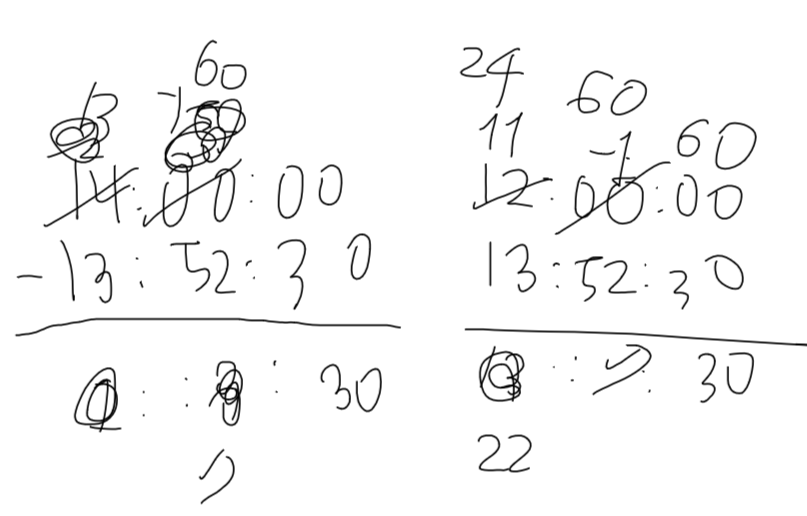 60
13 -1
14:00:00
-13:52:30
: : 30
7
24
11 60
-1 60
12:00:00
13:52:30
: 7: 30
22